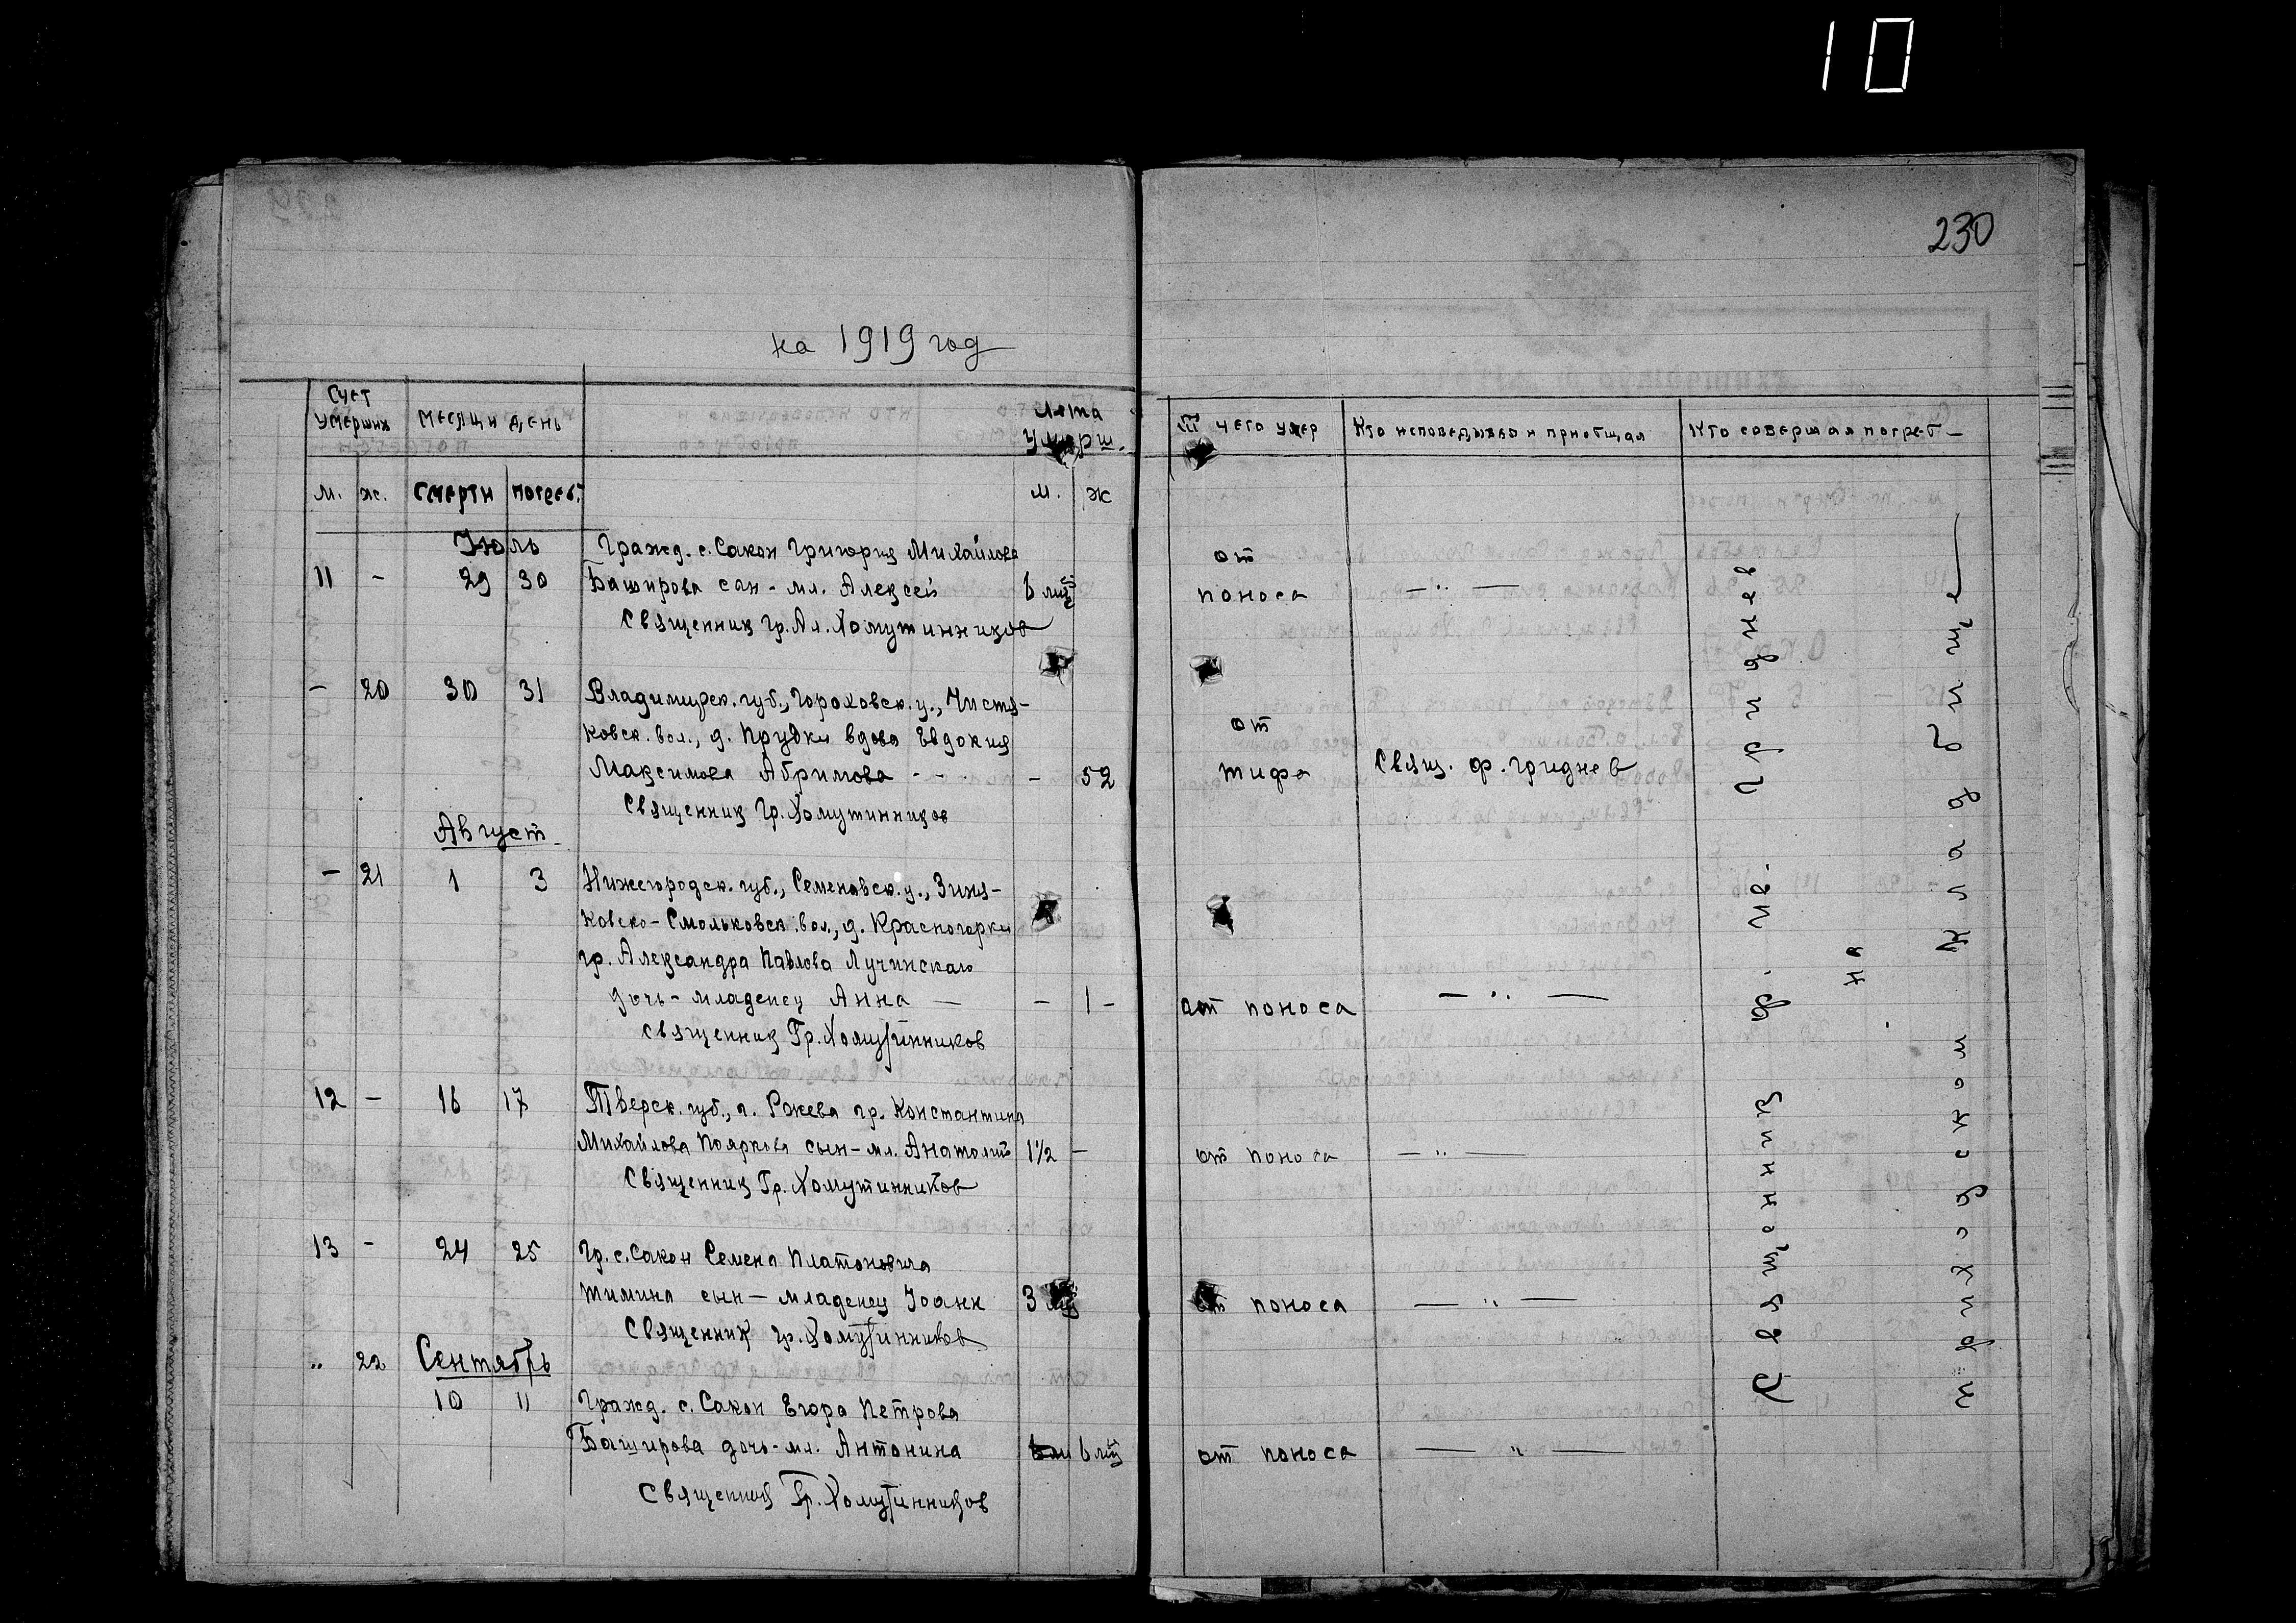 10
230
на 1919 год
Счет умерших
Месяц и день
Лета умерш.
От чего умер
Кто исповедывал и приобщал
Кто совершал погреб-
м. ж. смерти погреб. м. ж
Июль
Гражд. с. Сакон Григория Михайлова
11 - 29 30 Баширова сын - мл. Алексей 6 мц
от поноса — " —
Священник Гр. Ал. Хомутинников
- 20 30 31 Владимирск. губ., Гороховск. у., Чистя-
ковск. вол., д. Прудки вдова Евдокия
Максимова Абрамова - - . - 52
от тифа Свящ. Ф. Гриднев
Священник Гр. Хомутинников
Август
- 21 1 3 Нижегородск. губ., Семеновск. у.,
ковско-Смольковск. вол., д. Красногорки
гр. Александра Павлова Лучинскаго
дочь - младенец Анна — - 1 -
от поноса — " —
Священник Гр. Хомутинников
12 - 16 17 Тверск. губ., г. Ржева гр. Константина
Михайлова Пояркова сын - мл. Анатолий 1½ -
от поноса — " —
Священник Гр. Хомутинников
13 - 24 25 Гр. с. Сакон Семена Платоновича
Тимина сын — младенец Иоанн 3 мц
от поноса — " —
Священник Гр. Хомутинников
" 22 Сентябрь
10 11 Гражд. с. Сакон Егора Петрова
Баширова дочь - мл. Антонина 6 мц
от поноса — " —
Священник Гр. Хомутинников
Священник Ф. Ив. Гриднев
на
приходском кладбище